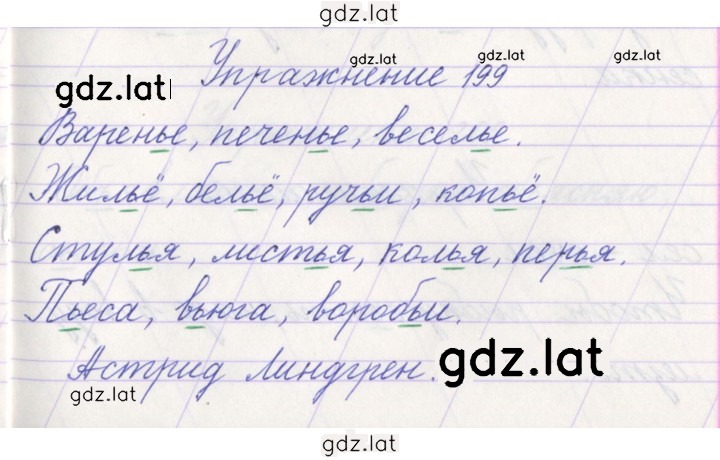 gdz.lat
gdz.lat gdz.lat
gdz.lat
Упражнение 199
Варенье, печенье, веселье.
Жильё, бельё, ручьи, копьё.
Стулья, листья, колья, перья.
Пьеса, вьюга, воробьи.
Астрид Линдгрен.
gdz.lat
gdz.lat
gdz.lat